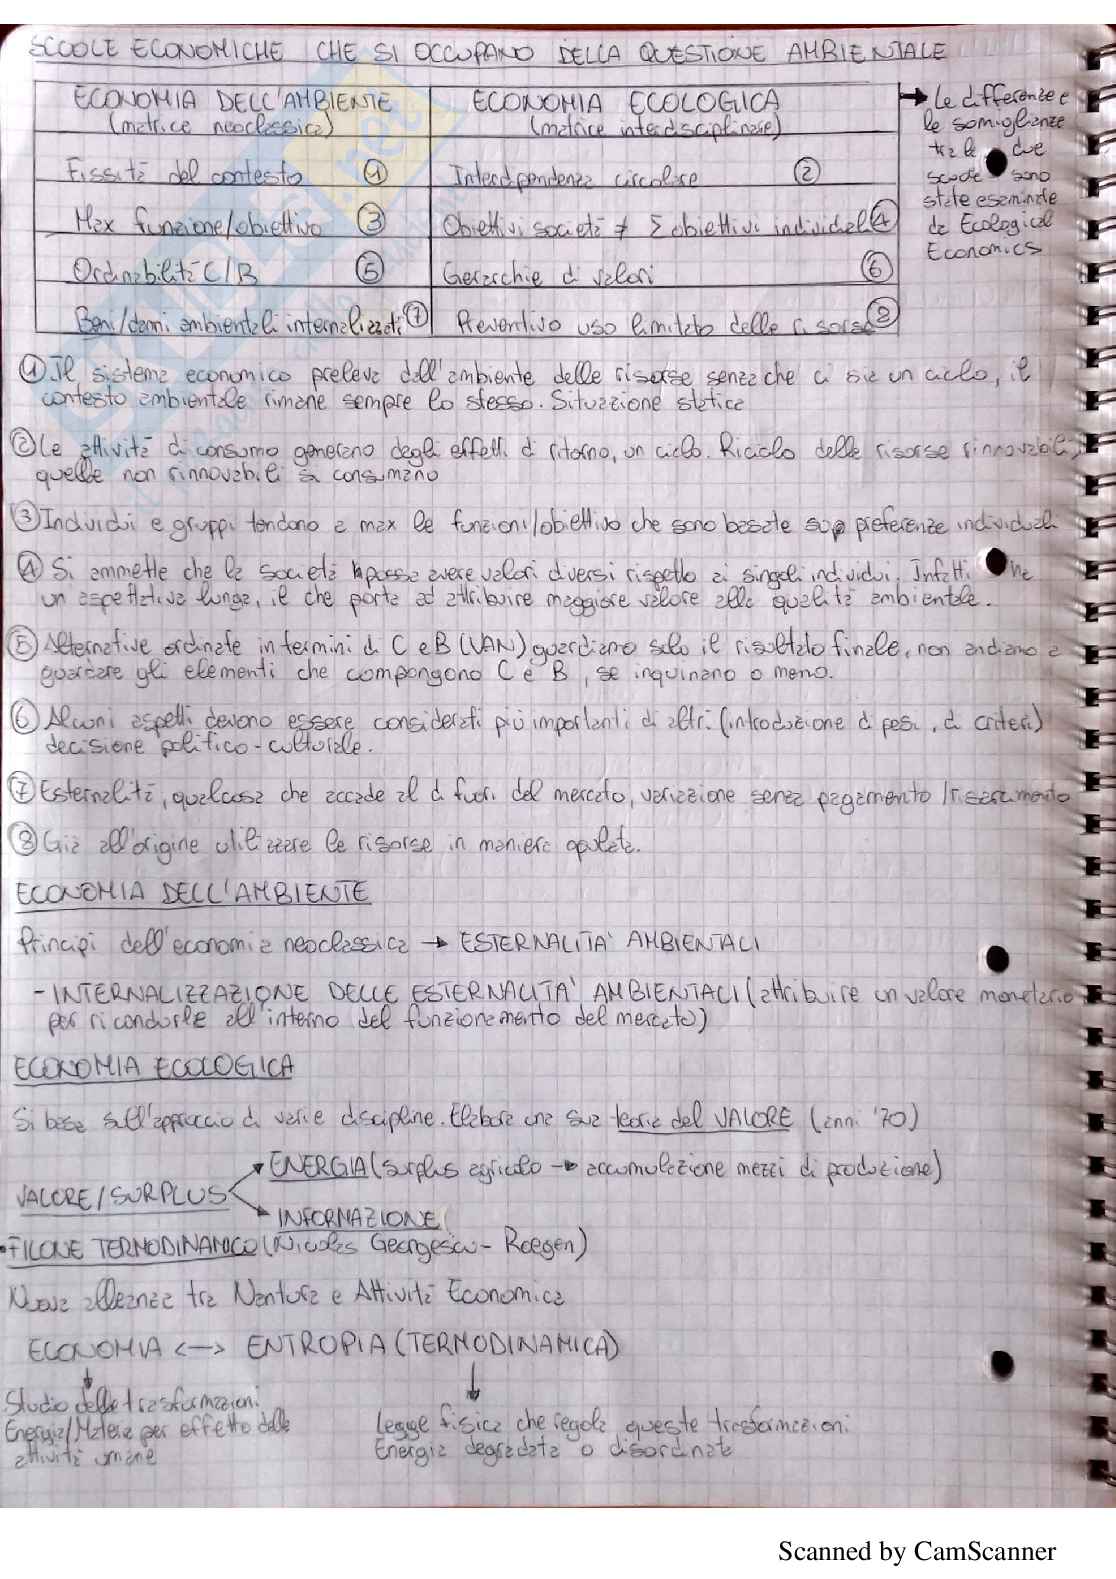 SCUOLE ECONOMICHE CHE SI OCCUPANO DELLA QUESTIONE AMBIENTALE
ECONOMIA DELL'AMBIENTE
(matrice neoclassica)
ECONOMIA ECOLOGICA
(matrice interdisciplinare)
→ Le differenze e
le somiglianze
tra le due
scuole sono
state esaminate
da Ecological
Economics
Fissità del contesto ①
Interdipendenza circolare ②
Max funzione/obiettivo ③
Obiettivi società ≠ Σ obiettivi individuali ④
Ordinabilità C/B ⑤
Gerarchie di valori ⑥
Beni/danni ambientali internalizzati ⑦
Preventivo uso limitato delle risorse ⑧
① Il sistema economico preleva dall'ambiente delle risorse senza che ci sia un ciclo, il
contesto ambientale rimane sempre lo stesso. Situazione statica
② Le attività di consumo generano degli effetti di ritorno, un ciclo. Riciclo delle risorse rinnovabili,
quelle non rinnovabili si consumano
③ Individui e gruppi tendono a max le funzioni/obiettivo che sono basate su preferenze individuali
④ Si ammette che la società possa avere valori diversi rispetto ai singoli individui. Infatti ne
un aspettativa lunga, il che porta ad attribuire maggiore valore alla qualità ambientale.
⑤ Alternative ordinate in termini di C e B (VAN) guardiamo solo il risultato finale, non andiamo a
guardare gli elementi che compongono C e B, se inquinano o meno.
⑥ Alcuni aspetti devono essere considerati più importanti di altri (introduzione di pesi, di criteri)
decisione politico-culturale.
⑦ Esternalità, qualcosa che accade al di fuori del mercato, variazione senza pagamento/risarcimento
⑧ Già all'origine utilizzare le risorse in maniera oculata.
ECONOMIA DELL'AMBIENTE
Principi dell'economia neoclassica → ESTERNALITA' AMBIENTALI
- INTERNALIZZAZIONE DELLE ESTERNALITA' AMBIENTALI (attribuire un valore monetario
per ricondurle all'interno del funzionamento del mercato)
ECONOMIA ECOLOGICA
Si basa sull'approccio di varie discipline. Elabora una sua teoria del VALORE (anni '70)
ENERGIA (surplus agricolo → accumulazione mezzi di produzione)
VALORE/SURPLUS
INFORMAZIONE
• FILONE TERMODINAMICO (Nicolas Georgescu-Roegen)
Nuova alleanza tra Nantura e Attività Economica
ECONOMIA <-> ENTROPIA (TERMODINAMICA)
Studio delle trasformazioni
Energia/Materia per effetto delle
attività umane
Legge fisica che regola queste trasformazioni
Energia degradata o disordinata
Scanned by CamScanner